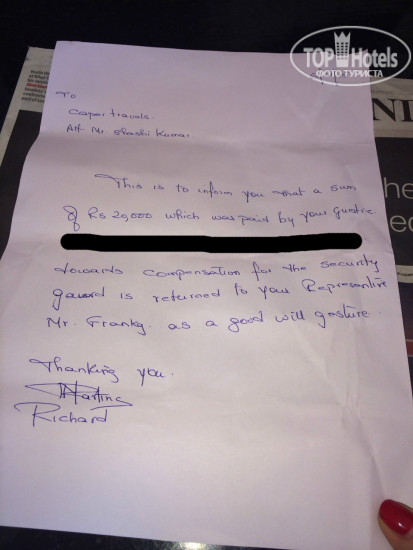 TOP Hotels
ФОТО ТУРИСТА
To
Caper travels.
Att Mr Shashi Kumar.
This is to inform you that a sum
of Rs 20,000 which was paid by your Guest
towards compensation for the security
gaurd is returned to your Representive
Mr. Franky. as a good will gesture.
Thanking you.
Richard